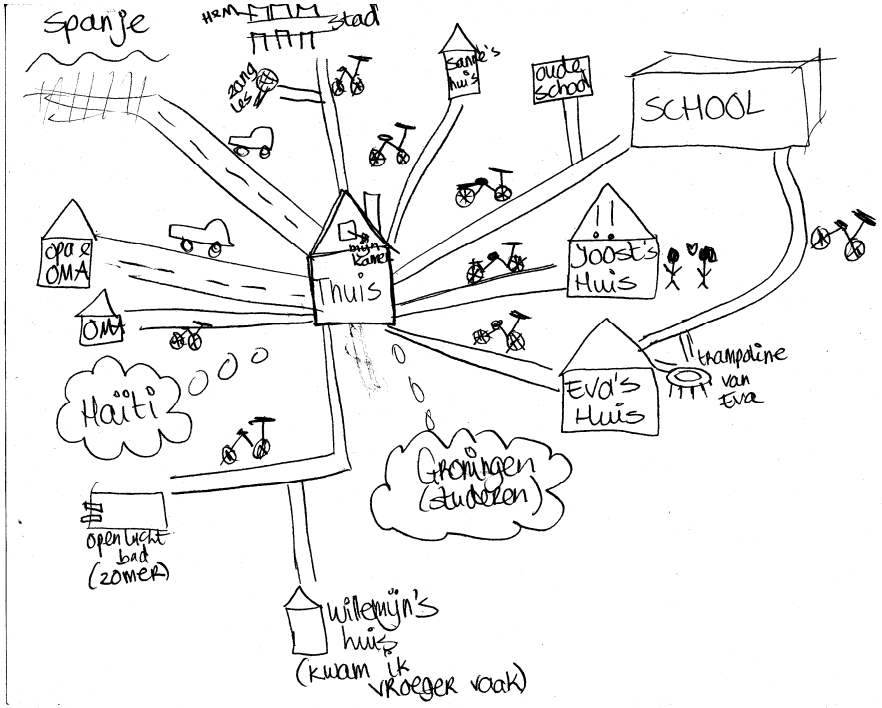 Spanje
H&M
Stad
zang
les
Sanne's
huis
oude
school
SCHOOL
mijn
kamer
Thuis
opa &
OMA
OMA
!!
Joost's
Huis
Eva's
Huis
trampoline
van
Eva
Haïti
Groningen
(studeren)
openlucht
bad
(zomer)
Willemijn's
huis
(kwam ik
vroeger vaak)